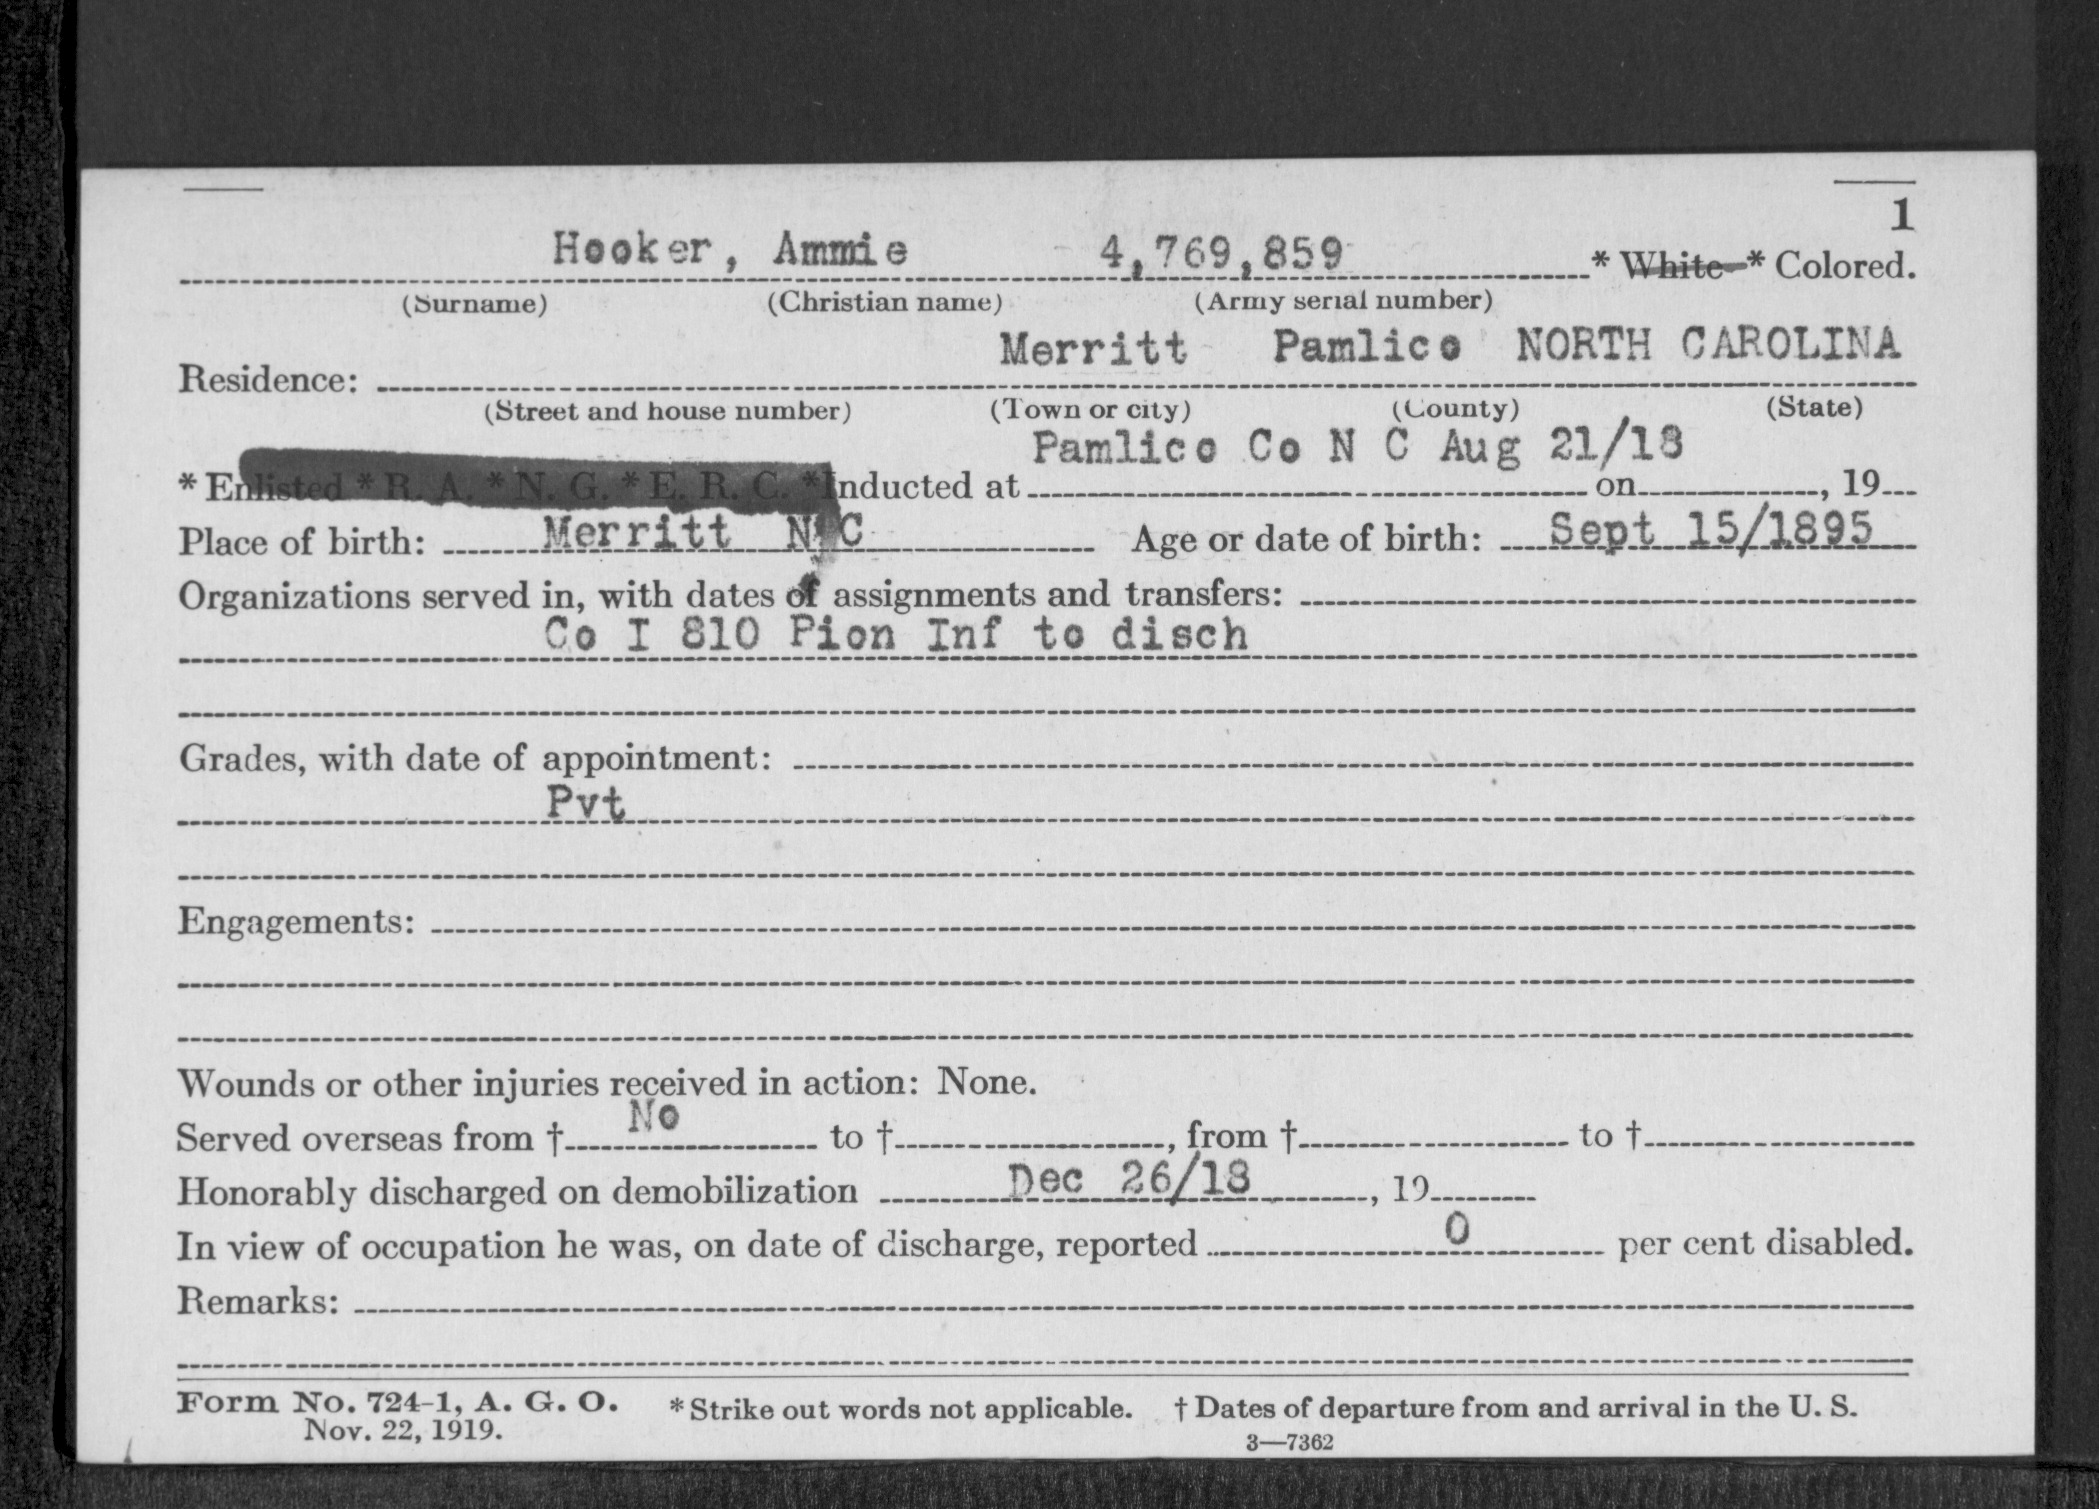 1
Hooker, Ammie 4,769,859 * White * Colored.
(Surname) (Christian name) (Army serial number)
Merritt Pamlico NORTH CAROLINA
Residence:
(Street and house number) (Town or city) (County) (State)
Pamlico Co N C Aug 21/18
* Enlisted * R. A. * N. G. * E. R. C. * Inducted at on , 19
Place of birth: Merritt N C Age or date of birth: Sept 15/1895
Organizations served in, with dates of assignments and transfers:
Co I 810 Pion Inf to disch
Grades, with date of appointment:
Pvt
Engagements:
Wounds or other injuries received in action: None.
Served overseas from † No to † , from † to †
Honorably discharged on demobilization Dec 26/18 , 19
In view of occupation he was, on date of discharge, reported 0 per cent disabled.
Remarks:
Form No. 724-1, A. G. O. * Strike out words not applicable. † Dates of departure from and arrival in the U. S.
Nov. 22, 1919. 3—7362